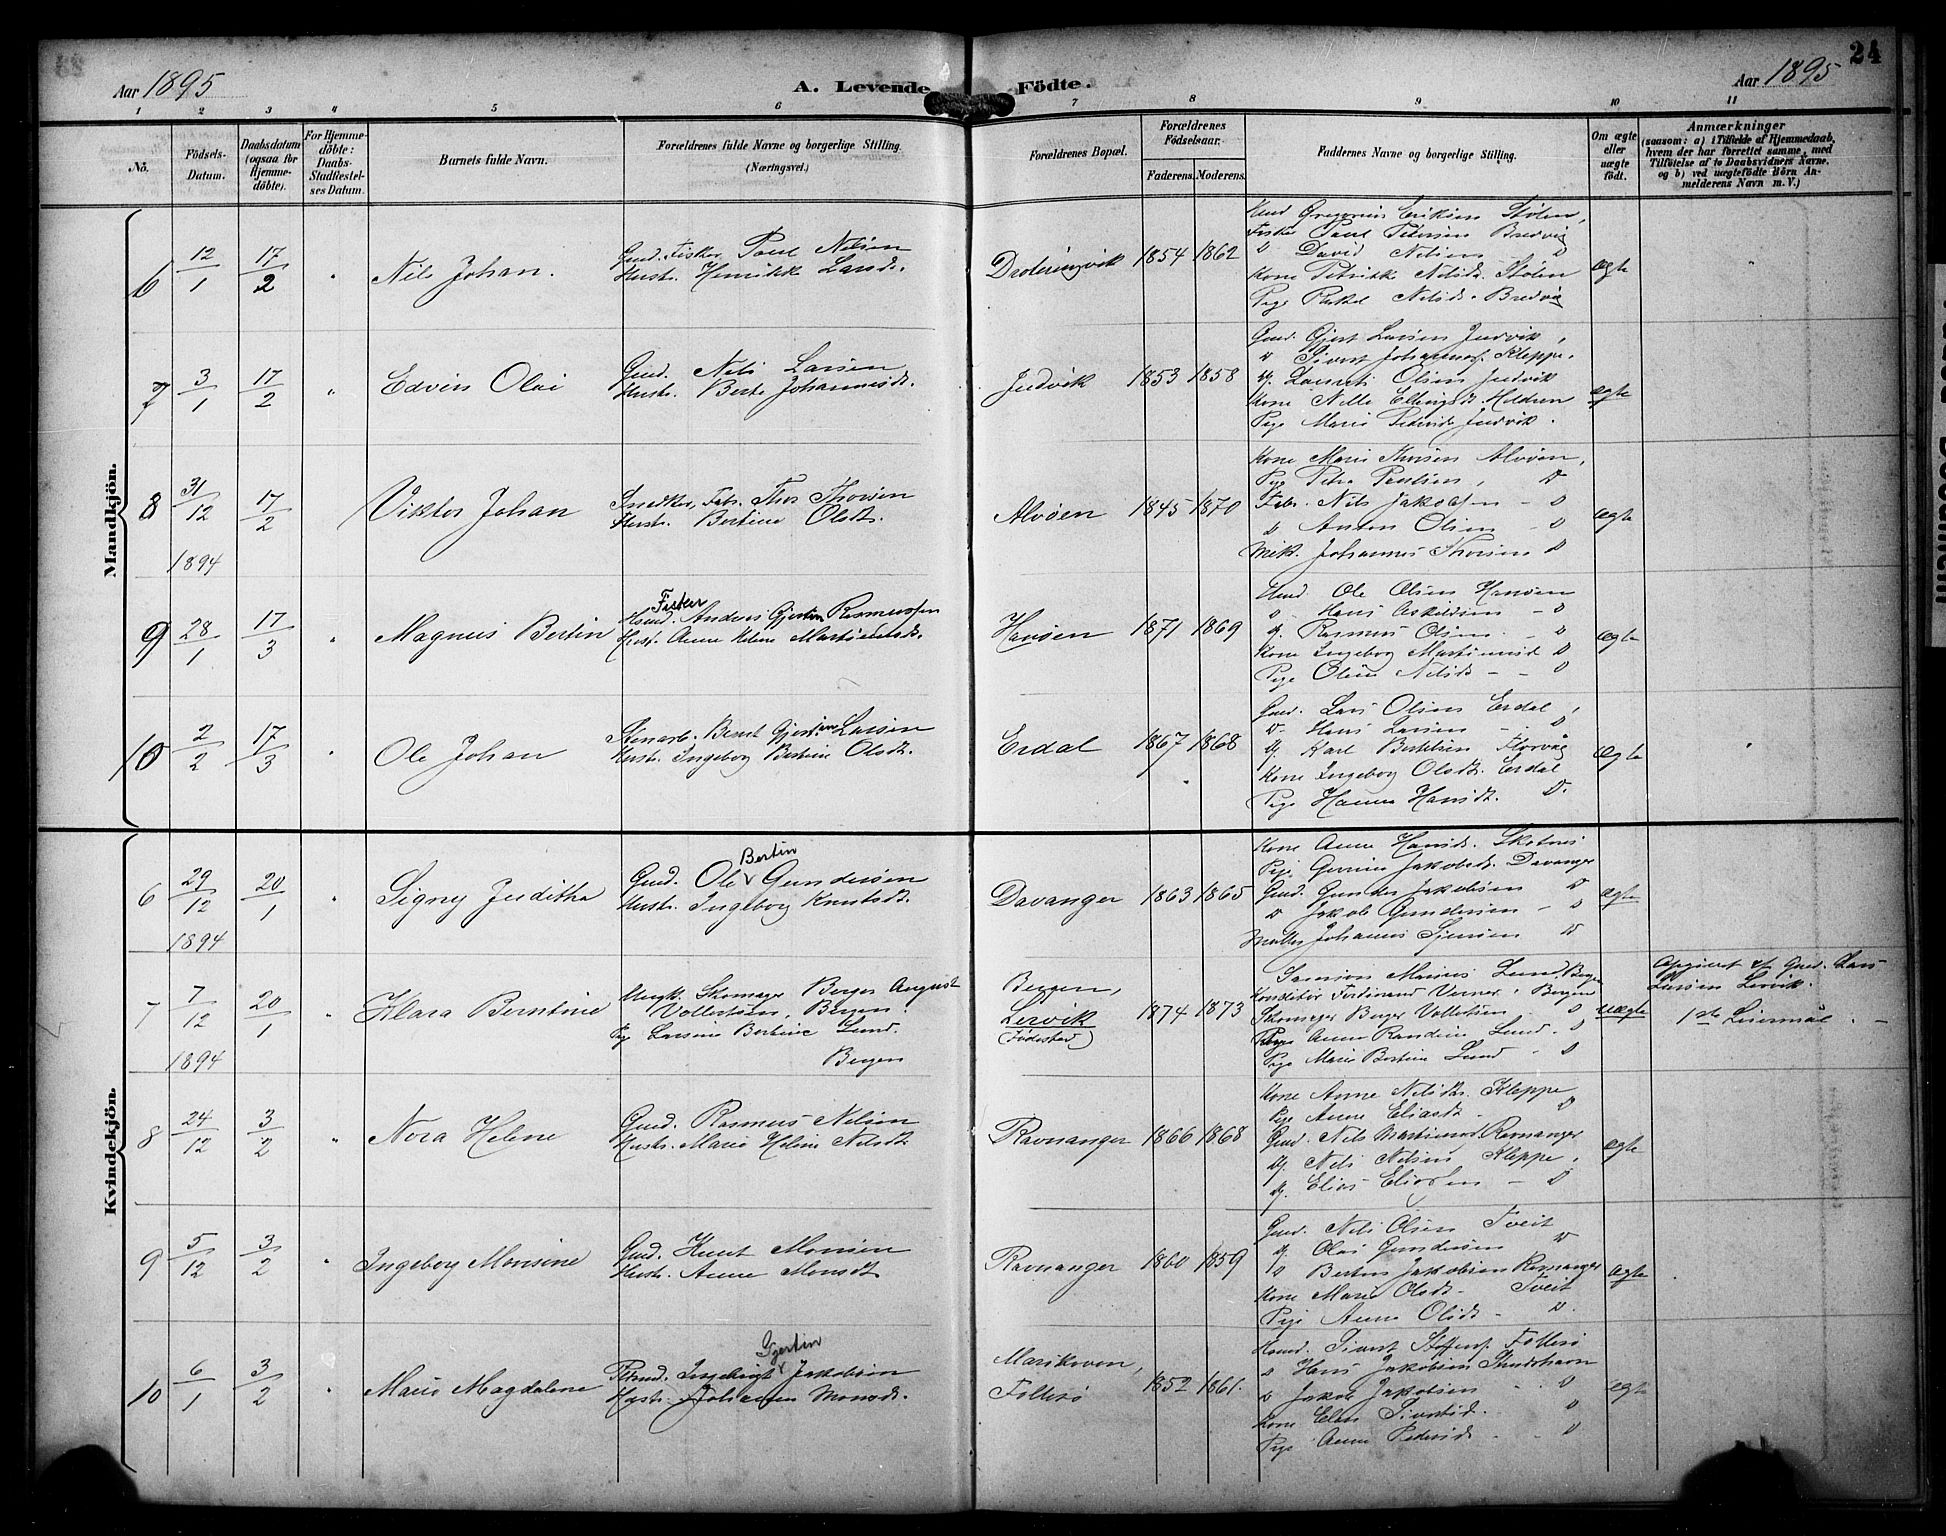 24
Aar 1895
A. Levende Födte.
Aar 1895
1 2 3 4 5 6 7 8 9 10 11
No.
Födsels-Datum.
Daabsdatum (ogsaa for Hjemmedöbte).
For Hjemmedöbte: Daabs-Stadfestelses Datum.
Barnets fulde Navn.
Forældrenes fulde Navne og borgerlige Stilling.
(Næringsvei.)
Forældrenes Bopæl.
Forældrenes Födselsaar.
Faderens. Moderens.
Faddernes Navne og borgerlige Stilling.
Om ægte eller uægte födt.
Anmærkninger
(saasom: a) i Tilfælde af Hjemmedaab,
hvem der har forrettet samme, med
Tilföielse af to Daabsvidners Navne.
og b) ved uægtefödte Börn An-
melderens Navn m. V.)
Mandkjön.
6 12/1 17/2 " Nils Johan.
Gmd. Fisker Paul Nilsen
Hustr. Henrikke Larsd.
1854 1862
Fisker Paul Pedersen Bredvig
" David Nilsen "
Kone Petrikke Nilsd. Stölen
Pige Rakel Nilsd. Bredvig
ægte
7 3/1 17/2 " Edvin Olai
Gmd. Nils Larsen
Hustr. Berte Johannesd.
Judvik 1853 1858
Gmd. Gjert Larsen Judvik,
" Sivert Johannes. Kleppe.
Uf. Laurits Olsen Judvik
Kone Nille Ellingsd. Heldren
Pige Marie Pedersd. Judvik.
ægte
8 31/12 17/2 " Viktor Johan
1894
Snedker, Fabr. Thos Thorsen
Hustr. Bertine Olsdt.
Alvöen 1845 1870
Kone Marie Thorsen Alvöen,
Pige Petra Paulsen, D
Fabr. Nils Jakobsen - D
" Anton Olsen - D
Mek. Johannes Thorsen D
ægte
9 28/1 17/3 " Magnus Bertin
Fisker
Hsmd. Anders Gjertin Rasmussen
Hust. Anne Helene Martinusd.
Hanöen 1871 1869
Hmd. Ole Olsen Hanöen
" Hans Askildsen - D
Uf. Rasmus Olsen - D
Kone Ingeborg Martinusd D
Pige Oline Nilsd. - - D
ægte
10 2/2 17/3 " Ole Johan
Stenarb. Bernt Gjertsen Larsen
Hustr. Ingeborg Bertine Olsdt.
Erdal 1867 1868
Gmd. Lars Olsen Erdal,
D. Hans Larsen - D
Uf. Karl Bertelsen Florvåg
Kone Ingeborg Olsdt. Erdal
Pige Hanna Hansdt. D.
ægte
Kvindekjön.
6 29/12 20/1 " Signy Juditha
1894
Bertin
Gmd. Ole Gundersen
Hustr. Ingeborg Knutsdt.
Davanger 1863 1865
Kone Anne Hansd. Skotnes
Pige Gurine Jakobsdt. Davanger
Gmd. Gunder Jakobsen D
" Jakob Gundersen - D
Johannes D
ægte
7 7/12 20/1 " Klara Berntine
1894
Ungk. Skomager Berger August
Vollertsen, Bergen.
Pg. Larsine Bertine Lund.
Bergen
Bergen,
Lervik
(Födested)
1874 1873
Marius Lund, Bergen
Konditor Ferdinand Verner, Bergen
Skomager Berger Vollertsen D
Pige Anne Randine Lund. D
Pige Marie Bertine Lund - D
uægte
Opgivet af Gmd. Lars
Larsen Lervik.
1ste Leiermål. -
8 24/12 3/2 " Nora Helene
Gmd. Rasmus Nilsen
Hustr. Marie Helene Nilsdt
Ravnanger 1866 1868
Kone Anne Nilsdtr. Kleppe
Pige Anne Eliasdt. - D
Gmd. Nils Martinus Ramanger
Uf. Nils Nilsen Kleppe.
Uf. Elias Eliassen - D
ægte
9 5/12 3/2 " Ingeborg Monsine
Gmd. Knut Monsen
Hustr. Anne Monsdt
Ravnanger 1860 1859
Gmd. Nils Olsen Tveit
Uf. Olai Gundersen D
" Bertin Jakobsen Ramanger
Kone Marie Olsdt. - Tveit
Pige Anna Olsdt - D.
ægte
10 6/1 3/2 " Marie Magdalene
Gjertin
Ingebrigt Jakobsen
Hustr. Johanna Monsdt.
Marikoven,
Follesö
1852 1861.
Hsmd. Sivert Steffens. Follesö
" Hans Jakobsen Sundshavn
" Jakob Jakobsen - D
Kone Elen Sivertsd. - D
Pige Anne Pedersd. - D
ægte